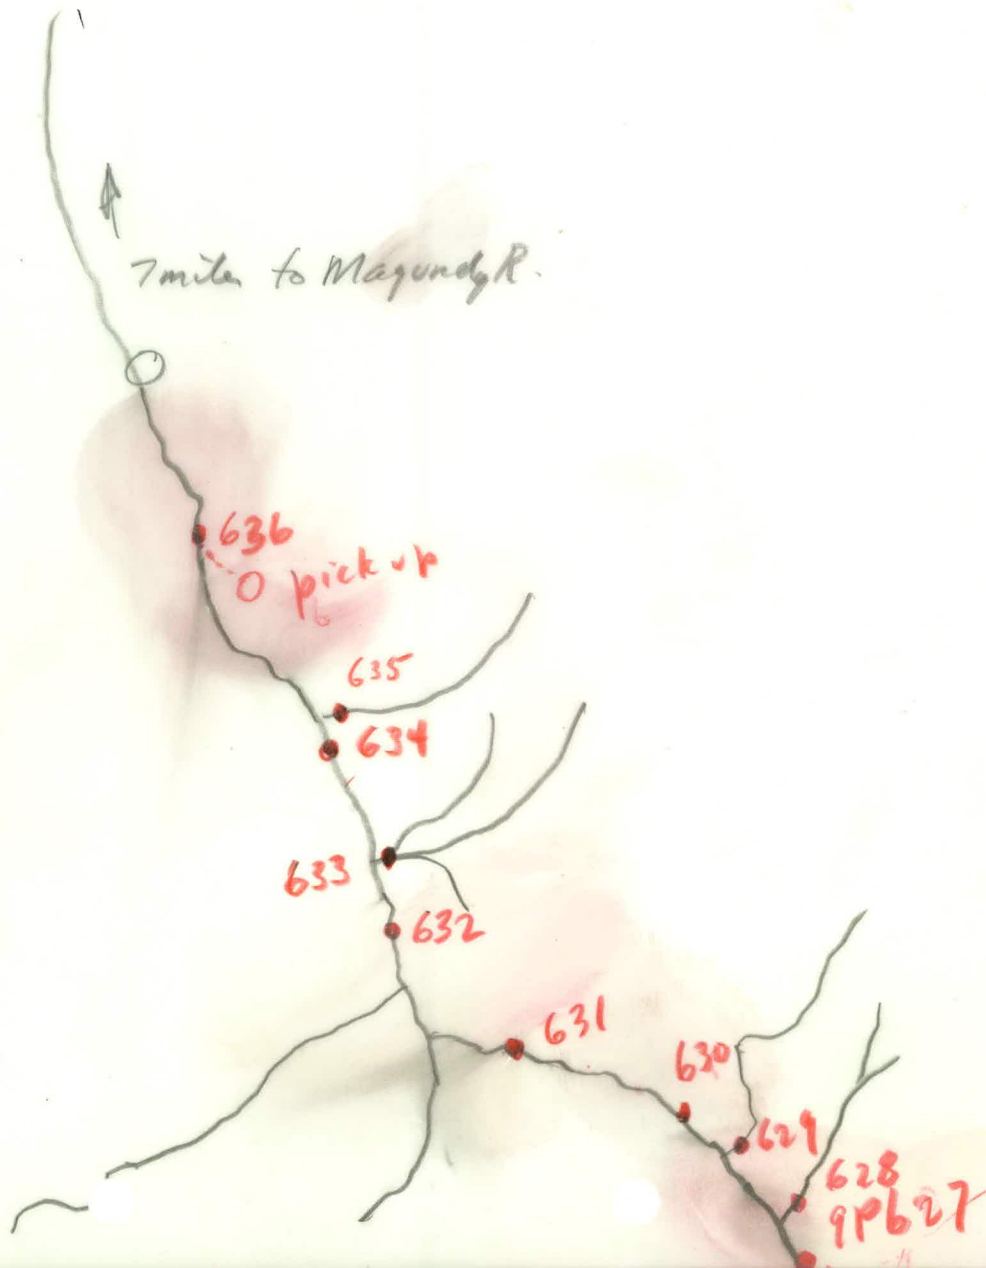 7 miles to Magundy R.
636
pick up
635
634
633
632
631
630
629
628
9P627